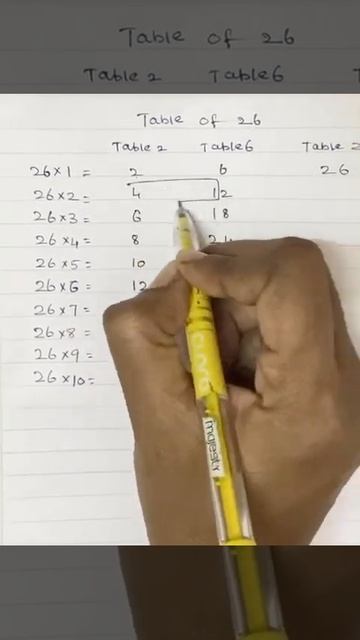 Table of 26
Table 2 Table 6
Table of 26
Table 2 Table 6 Table 2
26 × 1 = 2 6 26
26 × 2 = 4 12
26 × 3 = 6 18
26 × 4 = 8 24
26 × 5 = 10
26 × 6 = 12
26 × 7 =
26 × 8 =
26 × 9 =
26 × 10 =
majestic